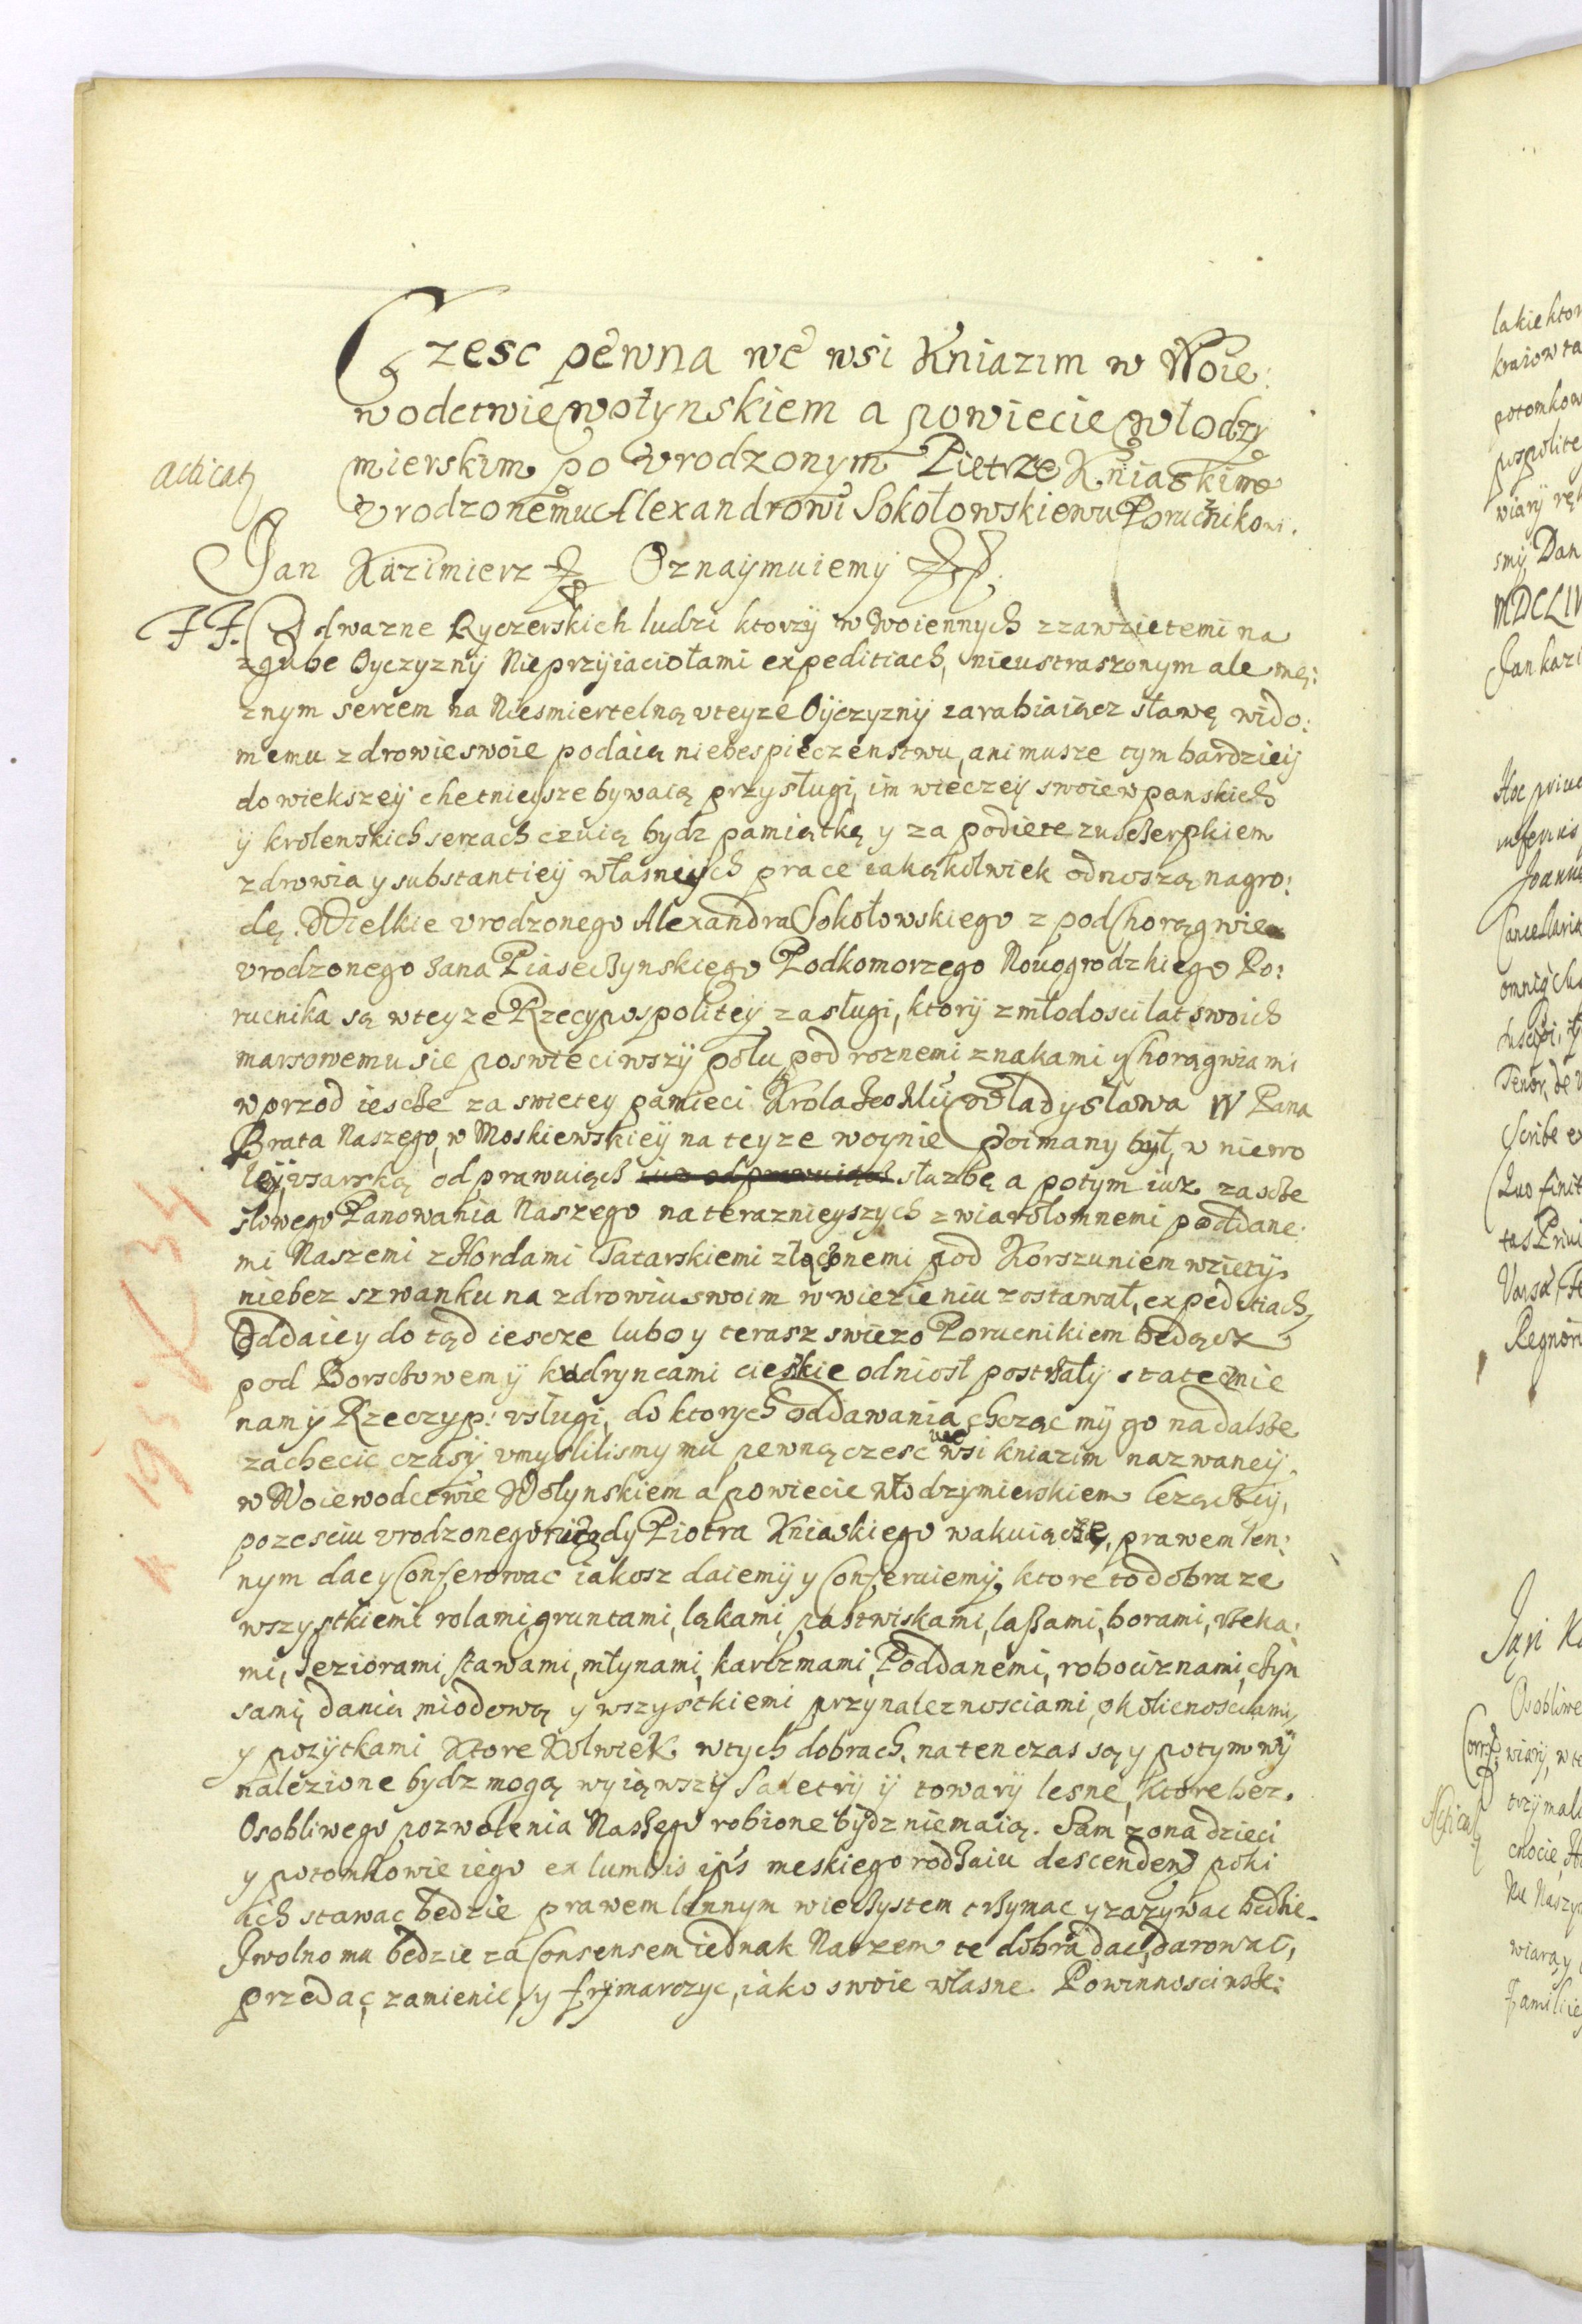 Czesc pewna we wsi Kniazim w Woie:
wodctwie wołynskiem a powiecie włodzy
mierskim po vrodzonym Pietrze Kniaskim
acticat
vrodzonemu Alexandrowi Sokołowskiemu Porucznikow.
Jan Kazimierz Oznaÿmuiemÿ
FF. Odwazne Ryczerskich ludzi ktorzÿ w Woiennych z zawzietemi na
zgube Oyczyznÿ Nieprzÿiaciołami expeditiach, nieustraszonym ale mę:
znym sercem na Niesmiertelną vteyze Oÿczyznÿ zarabiaiącz sławę wido:
memu zdrowie swoie podaią niebespieczenstwu, animusze tym bardzieÿ
do wiekszeÿ chetnieÿsze bywaią przysługi, im wieczeÿ swoie w panskich
ÿ krolenskich sercach czuią bydz pamiątką y za podiete zuszczerpkiem
zdrowia y substantieÿ własnÿch prace iakąkolwiek odnoszą nagro:
dę. Wielkie vrodzonego Alexandra Sokołowskiego z pod Chorągwie
vrodzonego Jana Piaseczynskiego Podkomorzego Nouogrodzkiego Po:
rucnika są wteyze Rzecypospoliteÿ zasługi, ktorÿ zmłodosci lat swoich
marsowemu sie poswieciwszÿ polu pod roznemi znakami y Chorągwiami
wprzod iescze za swietey pamieci Krola Jeo Mci Władysława IV Pana
Brata Naszego, w Moskiewskieÿ na teyze woynie poimany był, w niewo
leÿ, vsarską odprawuiąch słuzbę a potym iuz zascze
sliwego Panowania Naszego na teraznieyszych z wiarołomnemi poddane:
mi Naszemi z Hordami Tatarskiemi złączonemi pod Korszuniem wzietÿ
niebez szwanku na zdrowiu swoim w wiezieniu zostawał, expeditiach,
Oddaiey do tąd iescze lubo y terasz swiezo Porucnikiem bedącz
pod Borsczowem ÿ kudryncami cieskie odniosł postrzałÿ statecznie
nam ÿ Rzeczyp: vsługi, do ktorych oddawania chcąc mÿ go nadalsze
zachecic czasÿ vmyslilismy mu pewną czesc we wsi kniazim nazwaneÿ,
w Woiewodctwie Wołynskiem a powiecie włodzÿmierskiem lezączeÿ,
pozesciu vrodzonego niegdy Piotra Kniaskiego wakuiącze, prawem len:
nym dac y Conferowac iakosz daiemÿ y Conferuiemÿ, ktore to dobra ze
wszystkiemi rolami, gruntami, ląkami, pastwiskami, lassami, borami, rzeka:
mi, Jeziorami, stawami, młynami, karczmami, Poddanemi, robociznami, czyn
sami, danią miodową y wszystkiemi przynaleznosciami, okolicnosciami,
y pozÿtkami Ktore Kolwiek wtych dobrach, na ten czas są y potym wÿ
nalezione bydz mogą wyiąwszÿ Saletrÿ ÿ towarÿ lesne, ktore bez
Osobliwego pozwolenia Naszego robione bÿdz niemaią. Sam zona dzieci
y potomkowie iego ex lumbis ips meskiego rodzaiu descenden poki
ich stawac bedzie prawem lennym wieczystem trzymac y zazywac bedzie.
Iwolno mu bedzie za Consensem iednak Naszem te dobra dac, darowac,
przedac, zamienic, y frÿmarczyc, iako swoie własne. Powinnosci nsze: